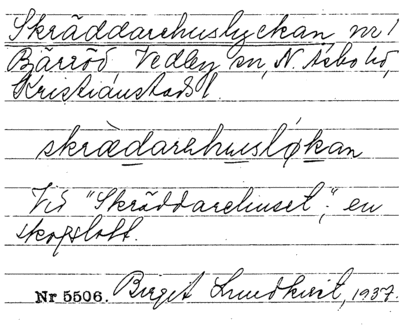 Skräddarehuslyckan, nr 1
Bjärröd Vedby sn, N. Åsbo hd,
Kristianstads l.
skrædarehusløkan
Vid "Skräddarehuset", en
skogslott.
Nr 5506. Birgit Lundkvist, 1937.